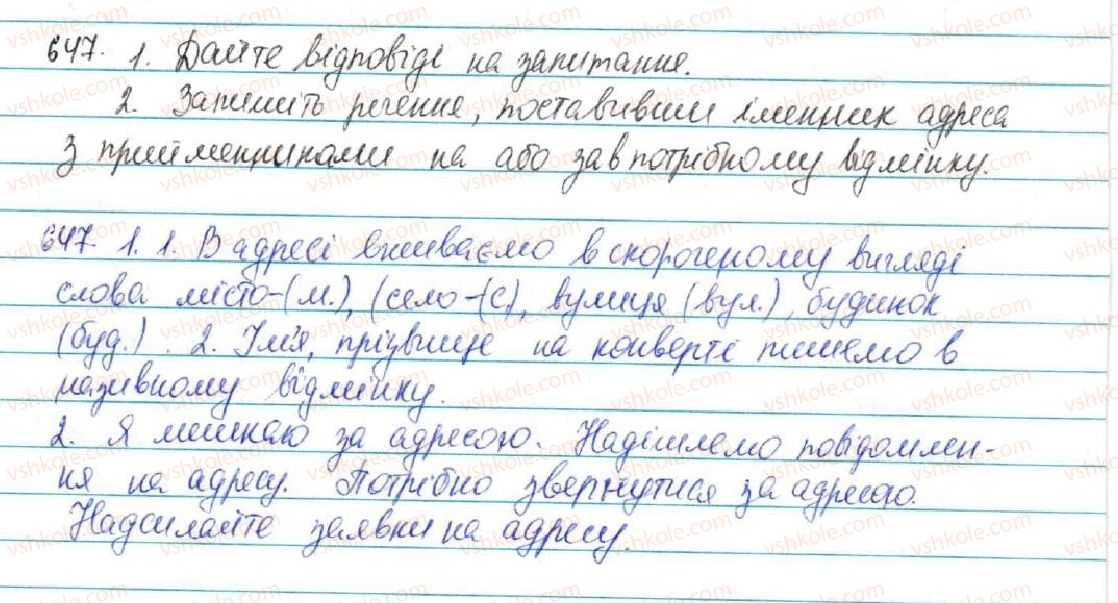 647. 1. Дайте відповіді на запитання.
2. Запишіть речення, поставивши іменник адреса
з прийменниками на або за в потрібному відмінку.
647. 1. 1. В адресі вживаємо в скороченому вигляді
слова місто-(м.), (село-(с), вулиця (вул.), будинок
(буд.). 2. Ім'я, прізвище на конверті пишемо в
називному відмінку.
2. Я мешкаю за адресою. Надішлемо повідомлен-
ня на адресу. Потрібно звернутися за адресою.
Надсилайте заявки на адресу.